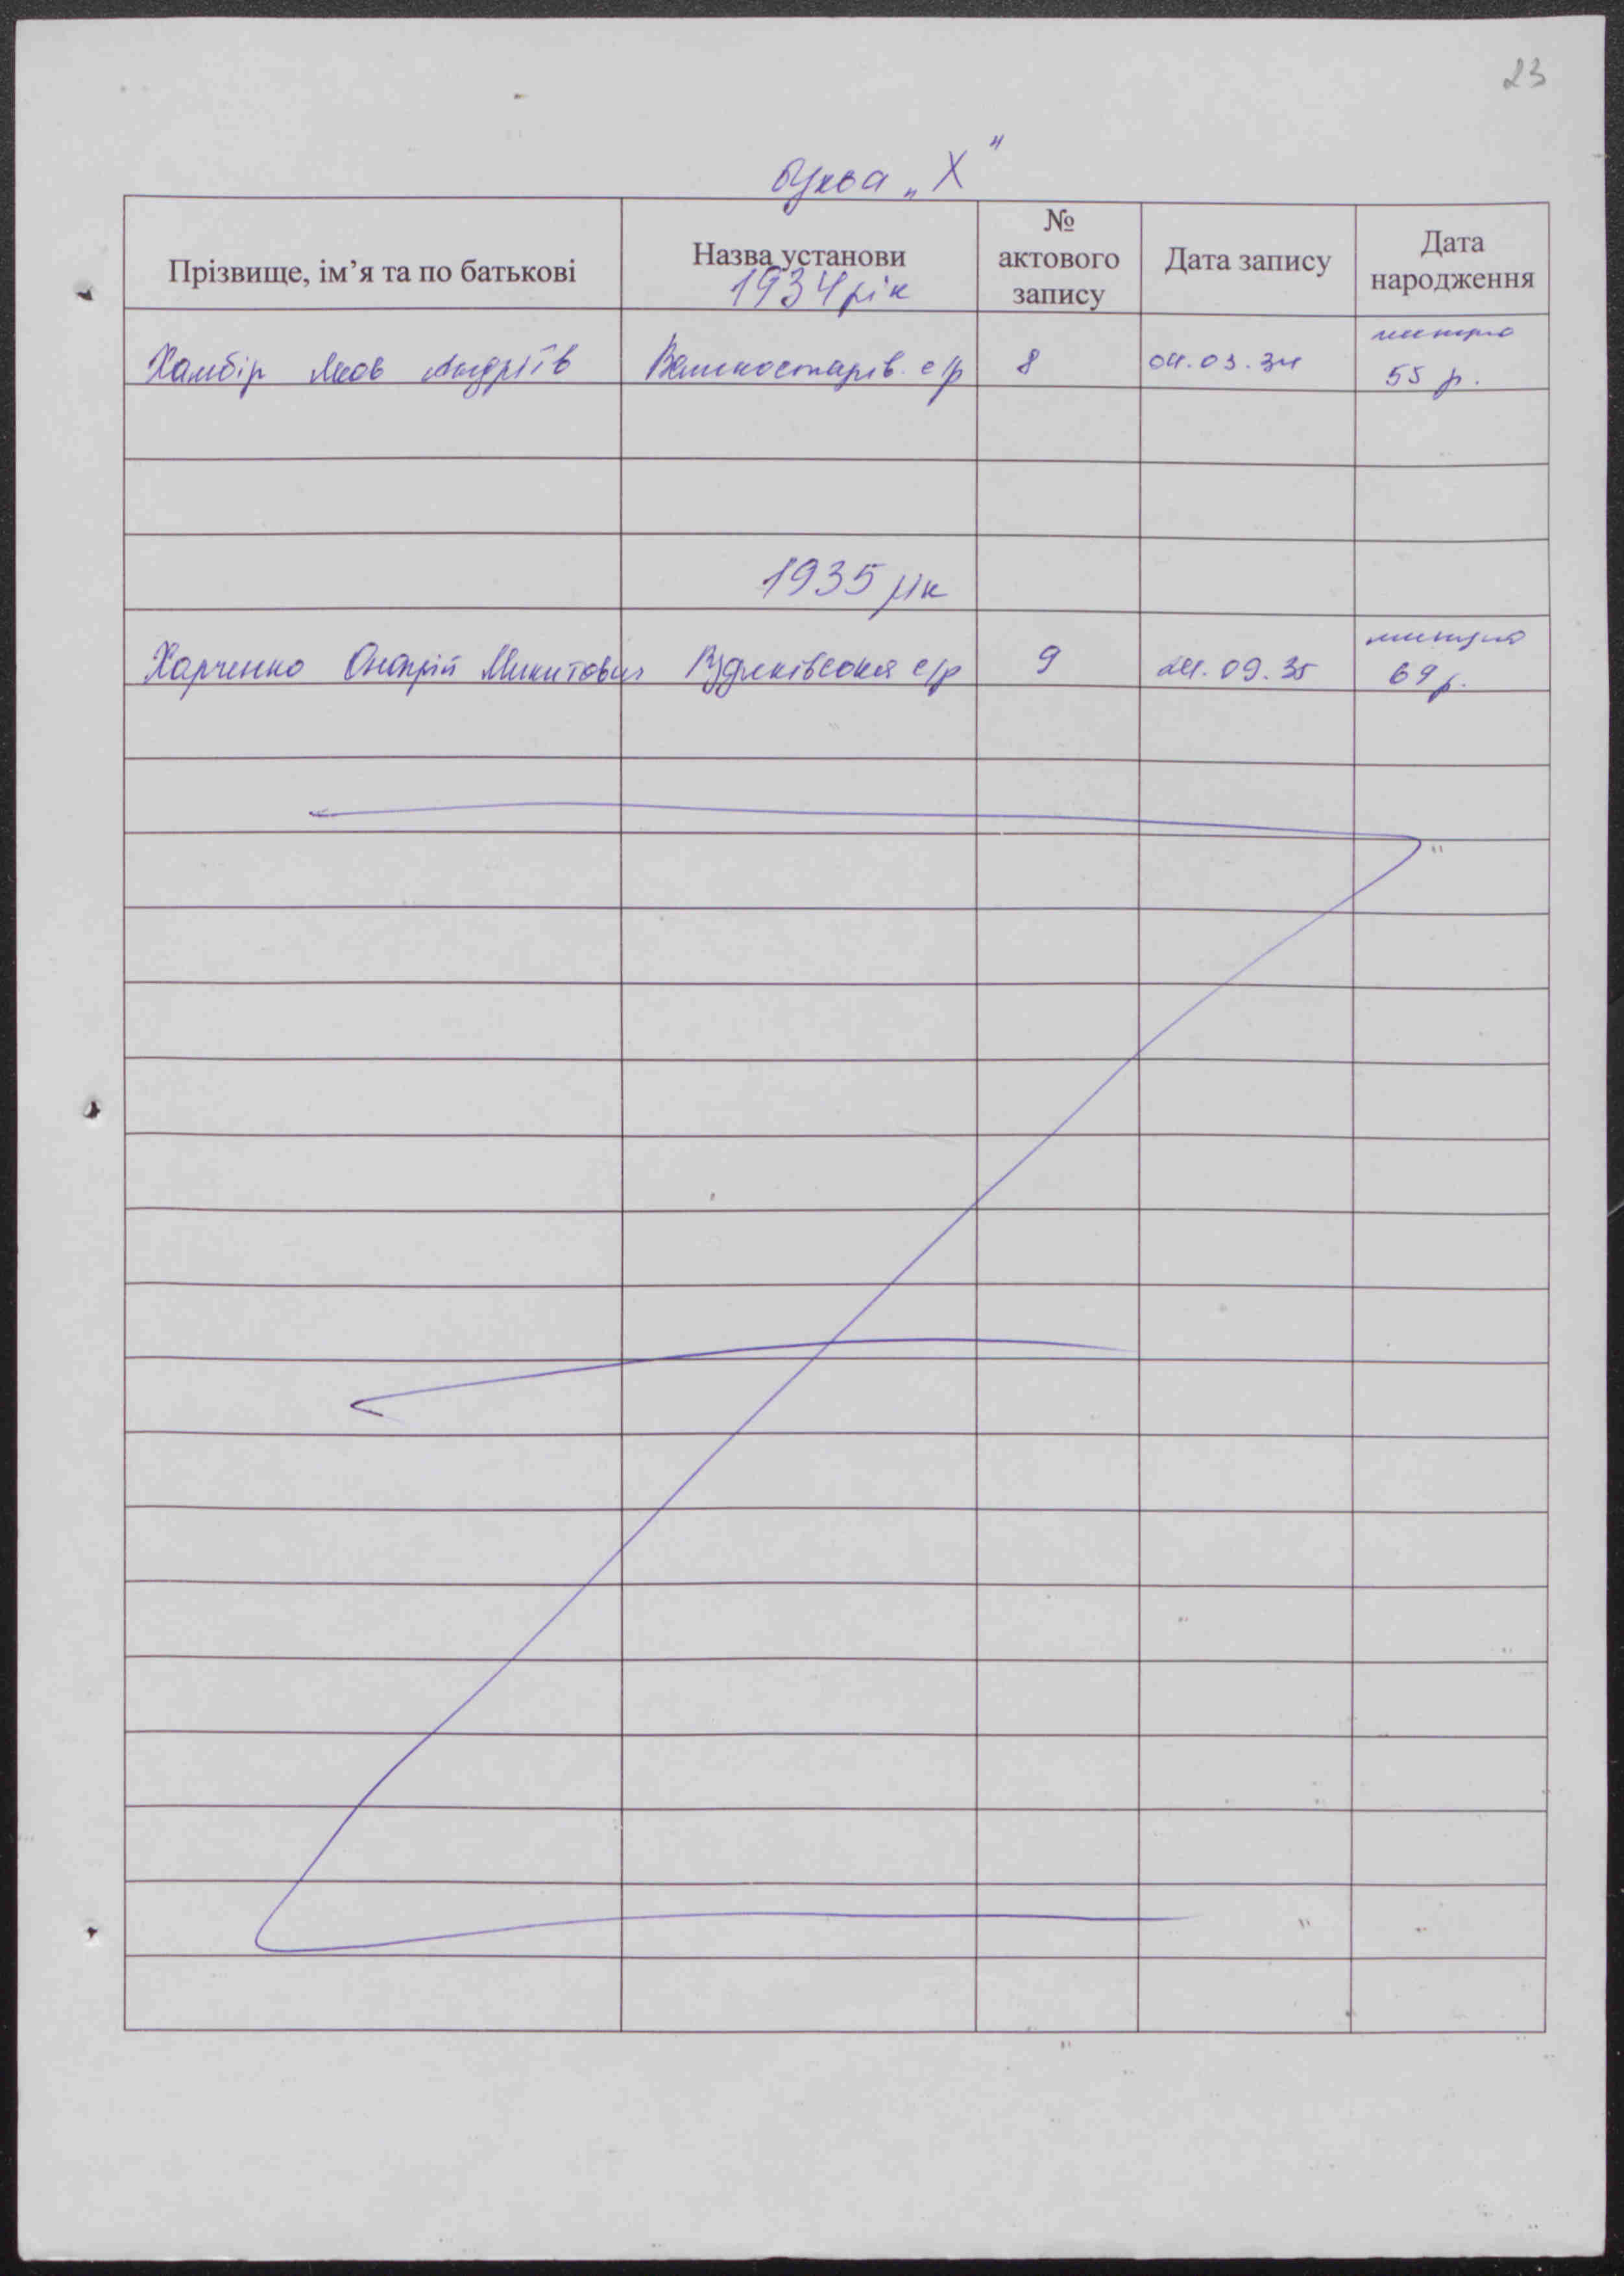 23
буква „Х"
Прізвище, ім’я та по батькові
Назва установи
№ актового запису
Дата запису
Дата народження
1934 рік
Хамбір Яков Андріїв Великостарів. с/р 8 04.03.34 минуло 55 р.
1935 рік
Харченко Онопрій Микитович с/р 9 24.09.35 минуло 69 р.